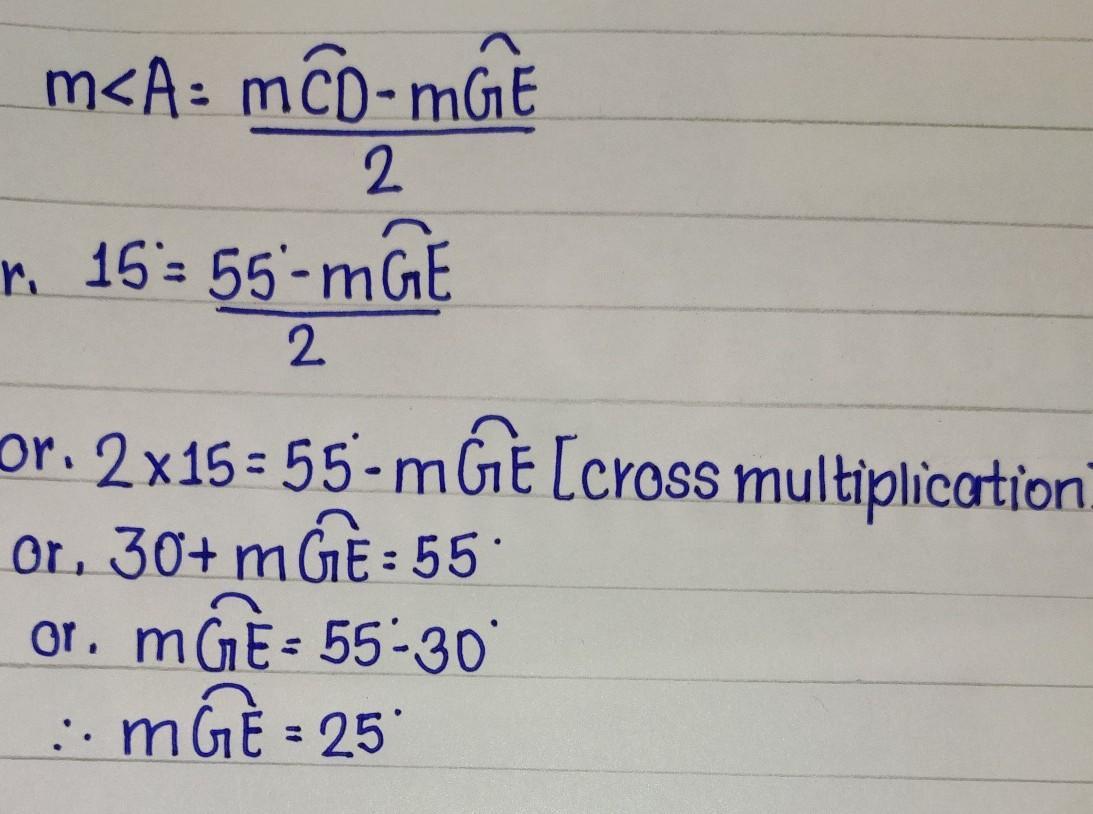 m<A = mC͡D - mG͡E
2
r. 15° = 55° - mG͡E
2
or. 2x15 = 55° - mG͡E [cross multiplication]
or, 30° + mG͡E = 55°
or. mG͡E = 55° - 30°
∴ mG͡E = 25°